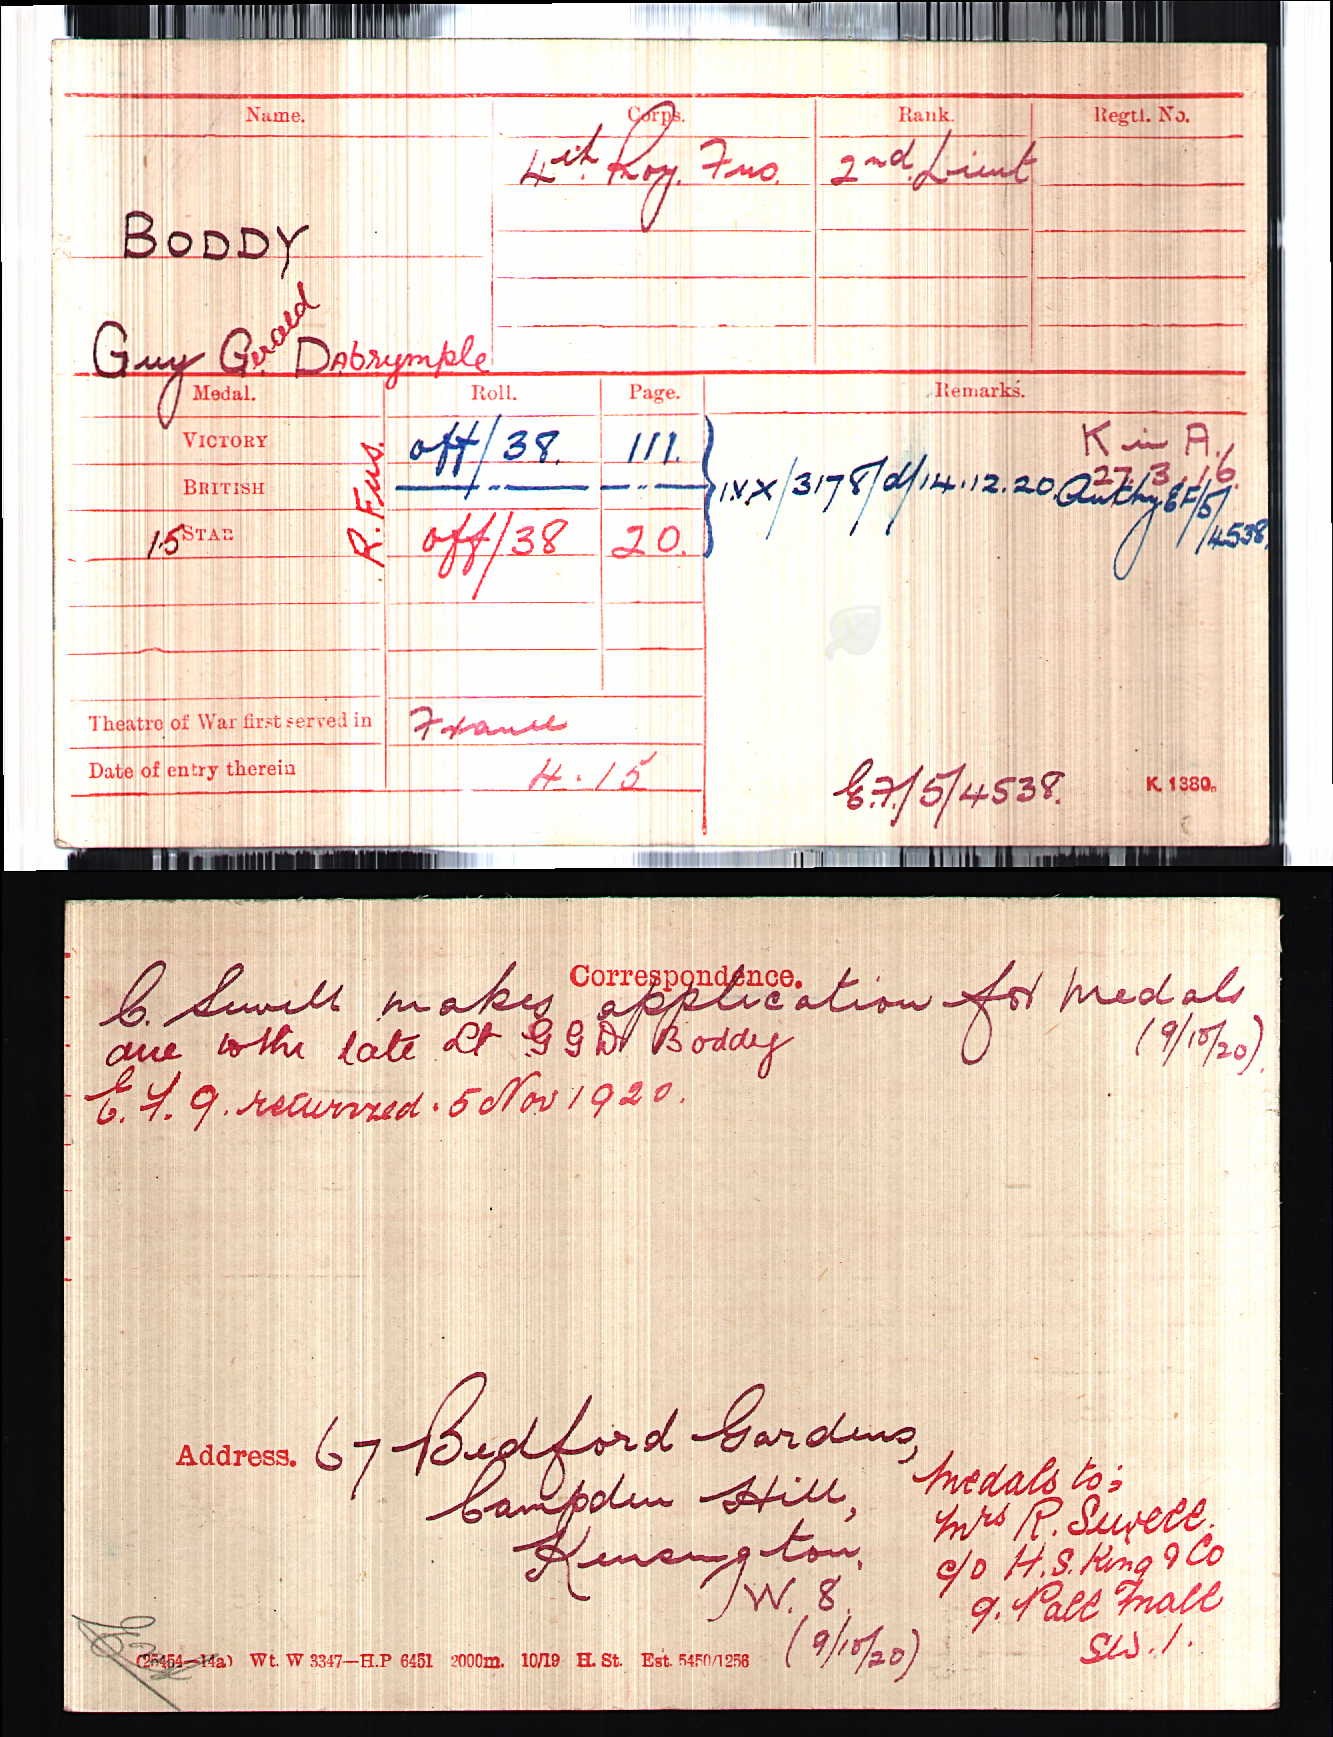 Name. Corps. Rank. Regtl. No.
4th Roy. Fus. 2nd Lieut
BODDY
Guy Gerald Dabrymple
Medal. Roll. Page. Remarks.
VICTORY off/38. 111. K in A.
27.3.16.
BRITISH —"— —"— IVX/3178/d/14.12.20. Authy EF/5/4538.
15 STAR off/38 20.
R. Fus.
Theatre of War first served in France
Date of entry therein 4.15
E.F./5/4538. K. 1380.
Correspondence.
C. Sewell makes application for medals
due to the late Lt G G D Boddy (9/10/20).
E.F.9. returned. 5 Nov 1920.
Address. 67 Bedford Gardens,
Campden Hill,
Kensington.
W. 8.
(9/10/20)
Medals to:
Mrs R. Sewell.
c/o H.S. King & Co
9. Pall Mall
SW.1.
(25454—14a) Wt. W 3347—H.P 6451 2000m. 10/19 H. St. Est. 5450/1256